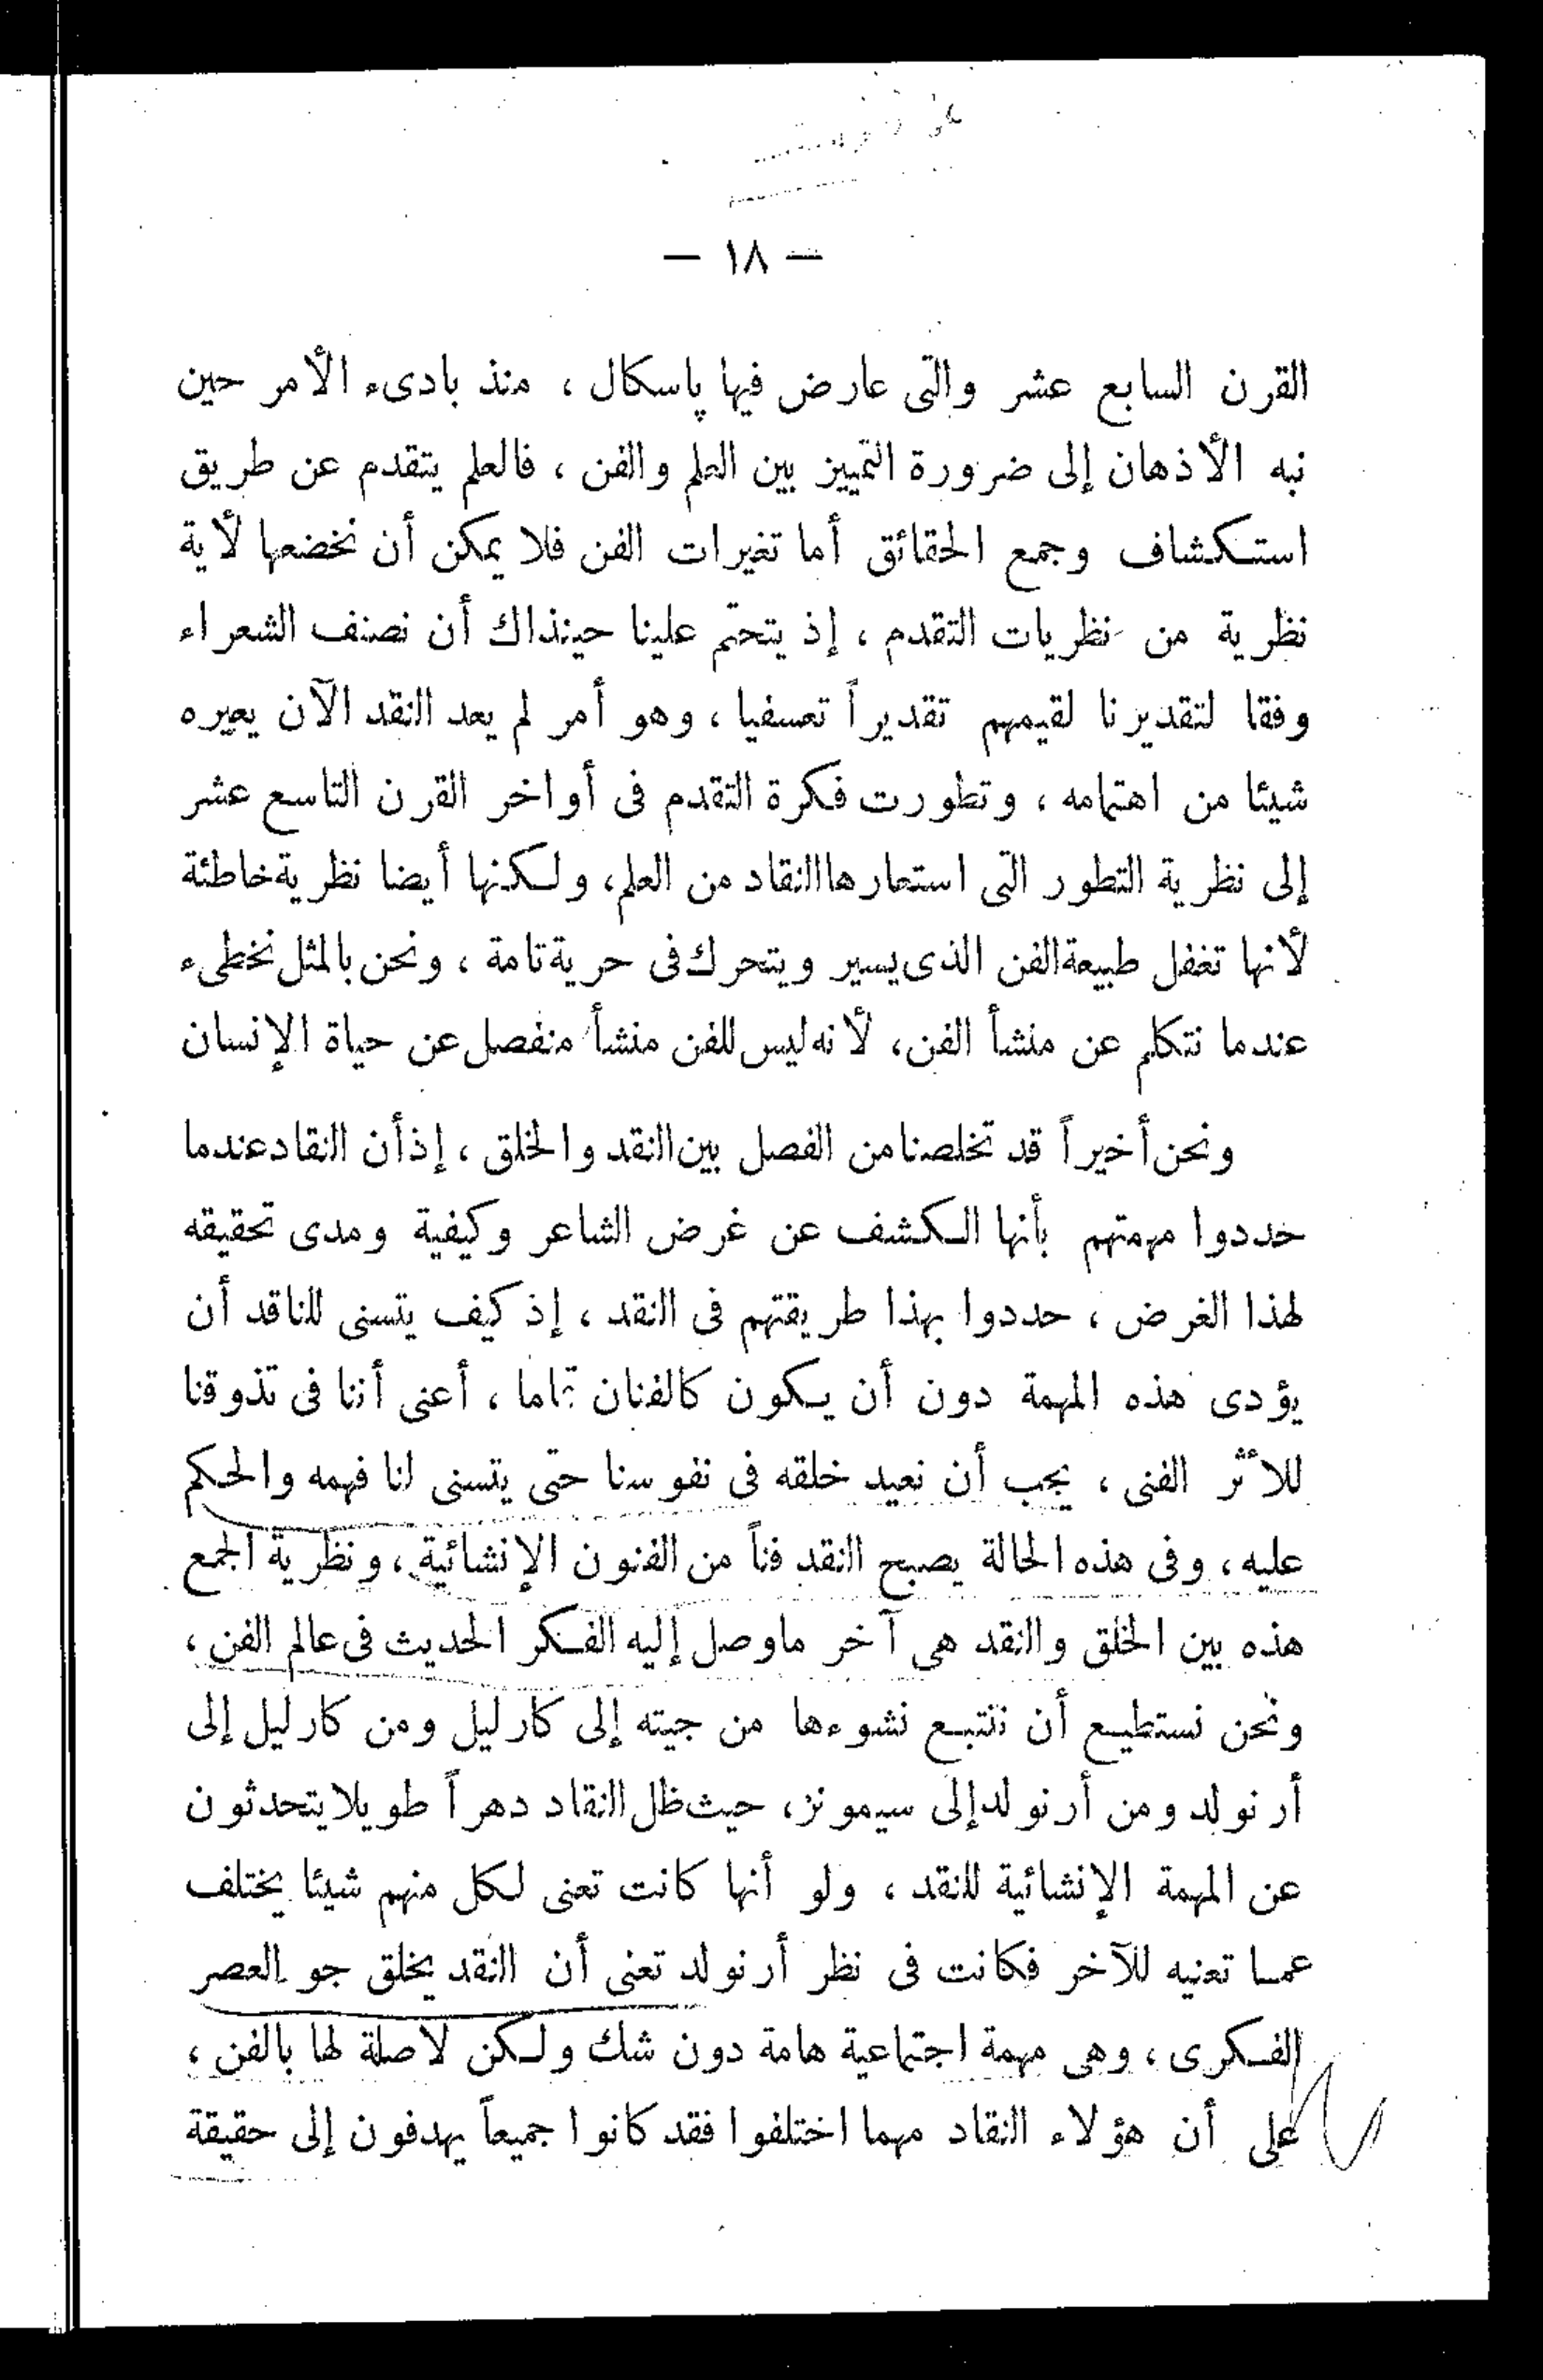 — ١٨ —
القرن السابع عشر والتى عارض فيها پاسكال ، منذ بادىء الأمر حين
نبه الأذهان إلى ضرورة التمييز بين العلم والفن ، فالعلم يتقدم عن طريق
استكشاف وجمع الحقائق أما تغيرات الفن فلا يمكن أن نخضعها لأية
نظرية من نظريات التقدم ، إذ يتحتم علينا حينذاك أن نصنف الشعراء
وفقا لتقديرنا لقيمهم تقديراً تعسفيا ، وهو أمر لم يعد النقد الآن يعيره
شيئا من اهتمامه ، وتطورت فكرة التقدم فى أواخر القرن التاسع عشر
إلى نظرية التطور التى استعارها النقاد من العلم، ولكنها أيضا نظرية خاطئة
لأنها تغفل طبيعة الفن الذى يسير ويتحرك فى حرية تامة ، ونحن بالمثل نخطىء
عندما نتكلم عن منشأ الفن، لأنه ليس للفن منشأ منفصل عن حياة الإنسان
ونحن أخيراً قد تخلصنا من الفصل بين النقد والخلق ، إذ أن النقاد عندما
حددوا مهمتهم بأنها الكشف عن غرض الشاعر وكيفية ومدى تحقيقه
لهذا الغرض ، حددوا بهذا طريقتهم فى النقد ، إذ كيف يتسنى للناقد أن
يؤدى هذه المهمة دون أن يكون كالفنان تماما ، أعنى أننا فى تذوقنا
للأثر الفنى ، يجب أن نعيد خلقه فى نفوسنا حتى يتسنى لنا فهمه والحكم
عليه ، وفى هذه الحالة يصبح النقد فناً من الفنون الإنشائية ، ونظرية الجمع
هذه بين الخلق والنقد هى آخر ماوصل إليه الفكر الحديث فى عالم الفن ،
ونحن نستطيع أن نتتبع نشوءها من جيته إلى كارليل ومن كارليل إلى
أرنولد ومن أرنولد إلى سيمونز، حيث ظل النقاد دهراً طويلا يتحدثون
عن المهمة الإنشائية للنقد ، ولو أنها كانت تعنى لكل منهم شيئا يختلف
عما تعنيه للآخر فكانت فى نظر أرنولد تعنى أن النقد يخلق جو العصر
الفكرى ، وهى مهمة اجتماعية هامة دون شك ولكن لاصلة لها بالفن ،
على أن هؤلاء النقاد مهما اختلفوا فقد كانوا جميعاً يهدفون إلى حقيقة